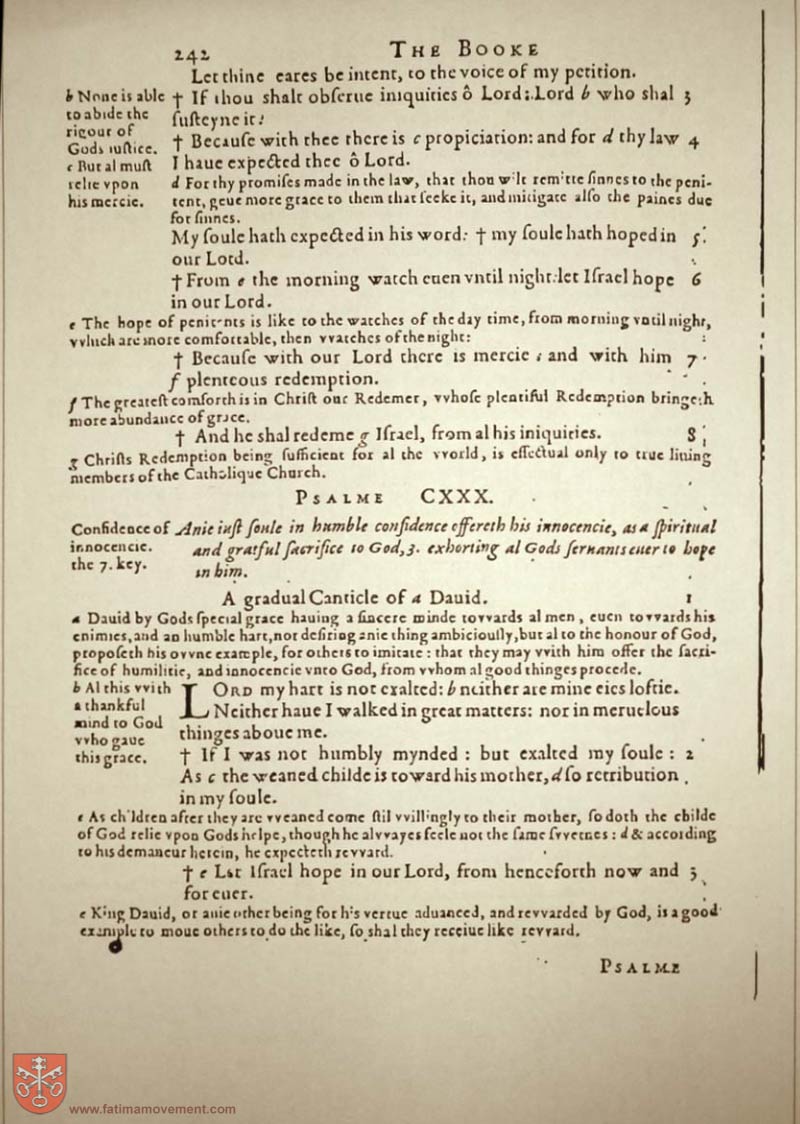 242 THE BOOKE
Let thine eares be intent, to the voice of my petition.
b None is able
to abide the
rigour of
Gods iustice.
c But al must
relie vpon
his mercie.
† If thou shalt obſerue iniquities ô Lord: Lord b who shal 3
ſuſteyne it?
† Becauſe with thee there is c propiciation: and for d thy law 4
I haue expected thee ô Lord.
d For thy promiſes made in the law, that thou wilt remitte ſinnes to the peni-
tent, geue more grace to them that ſeeke it, and mitigate alſo the paines due
for ſinnes.
My ſoule hath expected in his word: † my ſoule hath hoped in 5
our Lord.
† From e the morning watch euen vntil night: let Iſrael hope 6
in our Lord.
e The hope of penitents is like to the watches of the day time, from morning vntil night,
vvhich are more comfortable, then vvatches of the night:
† Becauſe with our Lord there is mercie: and with him 7
f plenteous redemption.
f The greateſt comforth is in Chriſt our Redemer, vvhoſe plentiful Redemption bringeth
more abundance of grace.
† And he shal redeme g Iſrael, from al his iniquities. 8
g Chriſts Redemption being ſufficient for al the vvorld, is effectual only to true liuing
members of the Catholique Church.
PSALME CXXX.
Confidence of
innocencie.
the 7. key.
Anie iuſt ſoule in humble confidence offereth his innocencie, as a ſpiritual
and grateful ſacrifice to God, 3. exhorting al Gods ſeruants euer to hope
in him.
A gradual Canticle of a Dauid. 1
a Dauid by Gods ſpecial grace hauing a ſincere minde tovvards al men, euen tovvards his
enimies, and an humble hart, not deſiring anie thing ambiciouſly, but al to the honour of God,
propoſeth his ovvne example, for others to imitate: that they may vvith him offer the ſacri-
fice of humilitie, and innocencie vnto God, from vvhom al good thinges procede.
b Al this vvith
a thankful
mind to God
vvho gaue
this grace.
LORD my hart is not exalted: b neither are mine eies loftie.
Neither haue I walked in great matters: nor in meruelous
thinges aboue me.
† If I was not humbly mynded: but exalted my ſoule: 2
As c the weaned childe is toward his mother, d ſo retribution
in my ſoule.
c As children after they are vveaned come ſtil vvillingly to their mother, ſo doth the childe
of God relie vpon Gods helpe, though he alvvayes feele not the ſame ſvvetnes: d & according
to his demaneur herein, he expecteth revvard.
† e Let Iſrael hope in our Lord, from henceforth now and 3
for euer.
e King Dauid, or anie other being for his vertue aduanced, and revvarded by God, is a good
example to moue others to do the like, ſo shal they receiue like revvard.
PSALME
www.fatimamovement.com